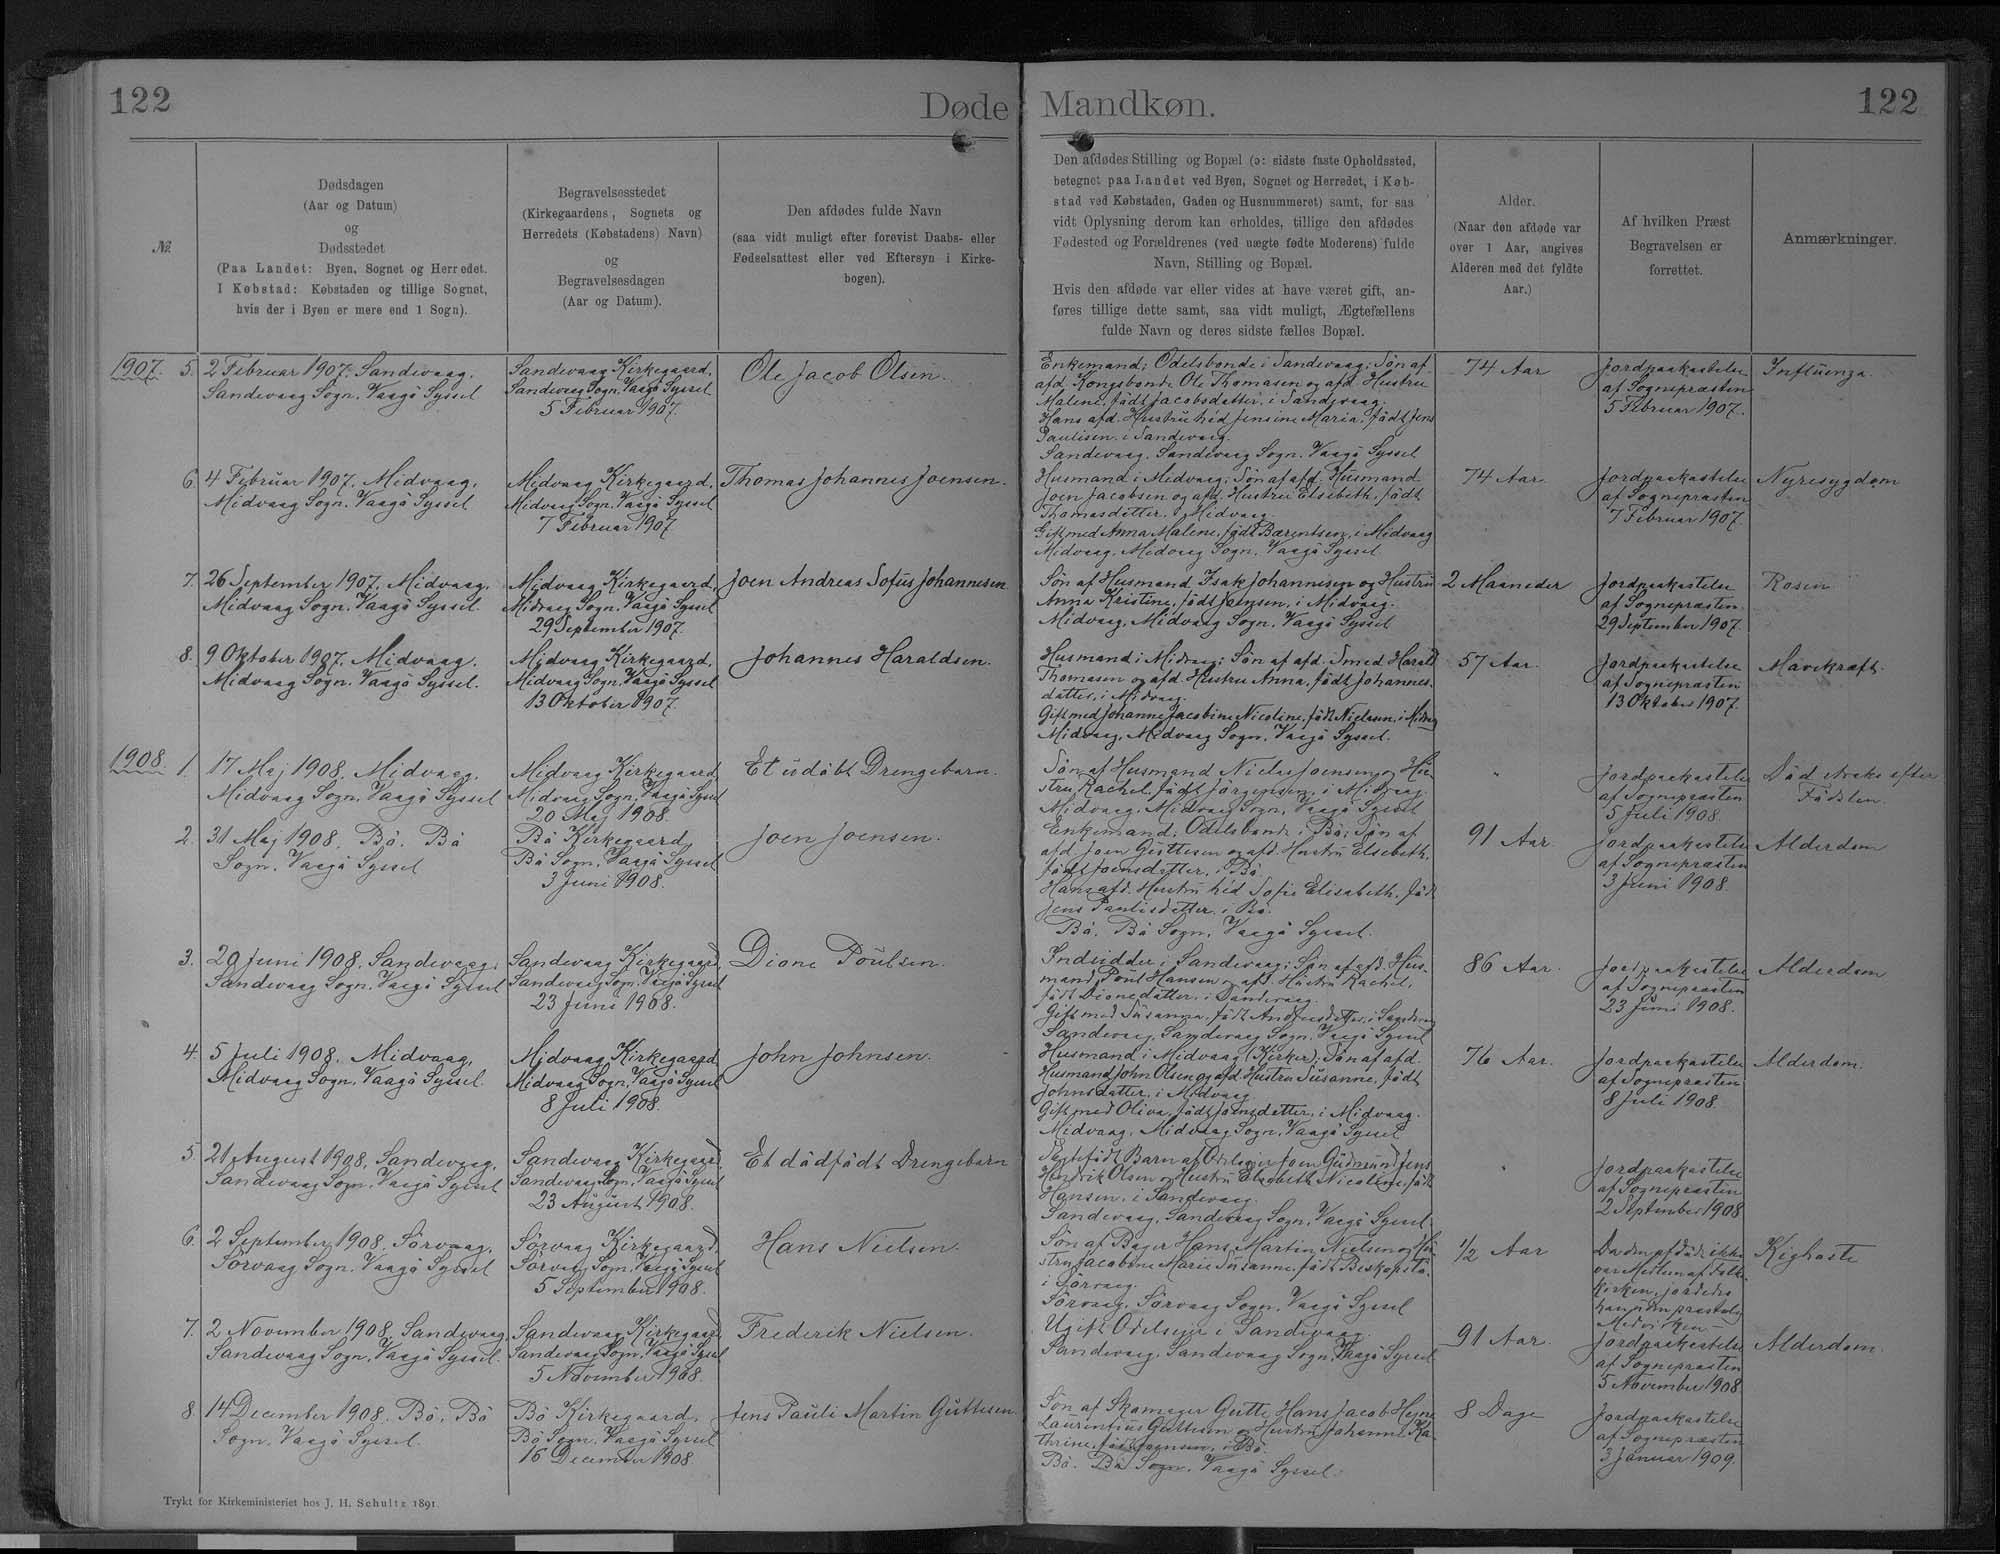 122
Døde
Mandkøn.
122
№
Dødsdagen
(Aar og Datum)
og
Dødsstedet
(Paa Landet: Byen, Sognet og Herredet.
I Købstad: Købstaden og tillige Sognet,
hvis der i Byen er mere end 1 Sogn).
Begravelsesstedet
(Kirkegaardens, Sognets og
Herredets (Købstadens) Navn)
og
Begravelsesdagen
(Aar og Datum).
Den afdødes fulde Navn
(saa vidt muligt efter forevist Daabs- eller
Fødselsattest eller ved Eftersyn i Kirke-
bogen).
Den afdødes Stilling og Bopæl (ɔ: sidste faste Opholdssted,
betegnet paa Landet ved Byen, Sognet og Herredet, i Køb-
stad ved Købstaden, Gaden og Husnummeret) samt, for saa
vidt Oplysning derom kan erholdes, tillige den afdødes
Fødested og Forældrenes (ved uægte fødte Moderens) fulde
Navn, Stilling og Bopæl.
Hvis den afdøde var eller vides at have været gift, an-
føres tillige dette samt, saa vidt muligt, Ægtefællens
fulde Navn og deres sidste fælles Bopæl.
Alder.
(Naar den afdøde var
over 1 Aar, angives
Alderen med det fyldte
Aar.)
Af hvilken Præst
Begravelsen er
forrettet.
Anmærkninger.
1907.
5. 2 Februar 1907. Sandevaag.
Sandevaag Sogn. Vaagö Syssel
Sandevaag Kirkegaard,
Sandevaag Sogn. Vaagö Syssel
5 Februar 1907.
Ole Jacob Olsen.
Enkemand; Odelsbonde i Sandevaag; Søn af
afd. Kongsbonde Ole Thomasen og afd. Hustru
Malene, födt Jacobsdatter, i Sandevaag.
Hans afd. Hustru héd Jensine Maria, födt Jens
Paulisen i Sandevaag.
Sandevaag. Sandevaag Sogn. Vaagö Syssel
74 Aar
Jordpaakastelse
af Sognepræsten
5 Februar 1907.
Influenza.
6. 4 Februar 1907. Midvaag.
Midvaag Sogn. Vaagö Syssel
Midvaag Kirkegaard,
Midvaag Sogn. Vaagö Syssel
7 Februar 1907
Thomas Johannes Joensen.
Husmand i Midvaag; Søn af afd. Husmand
Joen Jacobsen og afd. Hustru Elsebeth, födt
Thomasdatter, i Midvaag
Gift med Anna Malene, födt Bærentsen, i Midvaag
Midvaag, Midvaag Sogn. Vaagö Syssel
74 Aar
Jordpaakastelse
af Sognepræsten
7 Februar 1907
Nyresygdom
7. 26 September 1907. Midvaag.
Midvaag Sogn. Vaagö Syssel.
Midvaag Kirkegaard,
Midvaag Sogn. Vaagö Syssel
29 September 1907.
Joen Andreas Sofus Johannesen
Søn af Husmand Isak Johannesen og Hustru
Anna Kristine, födt Jensen, i Midvaag.
Midvaag, Midvaag Sogn. Vaagö Syssel
2 Maaneder
Jordpaakastelse
af Sognepræsten
29 September 1907.
Rosen
8. 9 Oktober 1907. Midvaag.
Midvaag Sogn. Vaagö Syssel.
Midvaag Kirkegaard,
Midvaag Sogn. Vaagö Syssel
13 Oktober 1907.
Johannes Haraldsen.
Husmand i Midvaag; Søn af afd. Smed Harald
Thomasen og afd. Hustru Anna, födt Johannes-
datter, i Midvaag.
Gift med Johanne Jacobine Nicoline, födt Nielsen, i Midvaag
Midvaag, Midvaag Sogn. Vaagö Syssel.
57 Aar
Jordpaakastelse
af Sognepræsten
13 Oktober 1907.
Mavekræft.
1908.
1. 17 Maj 1908. Midvaag.
Midvaag Sogn. Vaagö Syssel
Midvaag Kirkegaard
Midvaag Sogn. Vaagö Syssel
20 Maj 1908.
Et udöbt Drengebarn.
Søn af Husmand Niclas Joensen og Hu-
stru Rachel, födt Jörgensen, i Midvaag.
Midvaag, Midvaag Sogn, Vaagö Syssel
"
Jordpaakastelse
af Sognepræsten
5 Juli 1908.
Död straks efter
Födslen.
2. 31 Maj 1908. Bö. Bö
Sogn. Vaagö Syssel
Bö Kirkegaard
Bö Sogn. Vaagö Syssel
3 Juni 1908.
Joen Joensen.
Enkemand; Odelsbonde i Bö; Søn af
afd. Joen Guttesen og afd. Hustru Elsebeth,
födt Joensdatter, i Bö
Hans afd. Hustru héd Sofie Elisabeth, födt
Jens Paulisdatter, i Bö.
Bö. Bö Sogn. Vaagö Syssel.
91 Aar.
Jordpaakastelse
af Sognepræsten
3 Juni 1908.
Alderdom
3. 20 Juni 1908. Sandevaag.
Sandevaag Sogn. Vaagö Syssel
Sandevaag Kirkegaard,
Sandevaag Sogn. Vaagö Syssel
23 Juni 1908.
Dione Poulsen.
Indsidder i Sandevaag; Søn af afd. Hus-
mand Poul Hansen og afd. Hustru Rachel,
födt Dionedatter, i Sandevaag.
Gift med Susanna, födt Andreasdatter, i Sandevaag
Sandevaag, Sandevaag Sogn. Vaagö Syssel
86 Aar.
Jordpaakastelse
af Sognepræsten
23 Juni 1908.
Alderdom
4. 5 Juli 1908. Midvaag,
Midvaag Sogn. Vaagö Syssel.
Midvaag Kirkegaard
Midvaag Sogn. Vaagö Syssel
8 Juli 1908.
John Johnsen.
Husmand i Midvaag (Kirker); Søn af afd.
Husmand John Olsen og afd. Hustru Susanne, födt
Johnsdatter, i Midvaag
Gift med Oliva, födt Joensdatter, i Midvaag.
Midvaag, Midvaag Sogn. Vaagö Syssel
76 Aar.
Jordpaakastelse
af Sognepræsten
8 Juli 1908.
Alderdom.
5. 21 August 1908. Sandevaag,
Sandevaag Sogn. Vaagö Syssel
Sandevaag Kirkegaard,
Sandevaag Sogn. Vaagö Syssel
23 August 1908.
Et dödfödt Drengebarn
Ægtefödt Barn af Odelsejer Joen Gudmund Jens
Hendrik Olsen og Hustru Elsebeth Nicoline, födt
Hansen, i Sandevaag.
Sandevaag, Sandevaag Sogn, Vaagö Syssel
"
Jordpaakastelse
af Sognepræsten
2 September 1908
6. 2 September 1908. Sörvaag.
Sörvaag Sogn. Vaagö Syssel
Sörvaag Kirkegaard,
Sörvaag Sogn. Vaagö Syssel
5 September 1908.
Hans Nielsen.
Søn af Bager Hans Martin Nielsen og Hu-
stru Jacobine Marie Susanne, födt Biskopstö,
i Sörvaag.
Sörvaag. Sörvaag Sogn. Vaagö Syssel
1/2 Aar
Da den afdöde ikke
var Medlem af Folke-
kirken, jordedes
han uden præstelig
Medvirken
Kighoste
7. 2 November 1908. Sandevaag
Sandevaag Sogn, Vaagö Syssel.
Sandevaag Kirkegaard,
Sandevaag Sogn. Vaagö Syssel
5 November 1908.
Frederik Nielsen.
Ugift Odelsejer i Sandevaag
Sandevaag. Sandevaag Sogn. Vaagö Syssel
91 Aar.
Jordpaakastelse
af Sognepræsten
5 November 1908.
Alderdom.
8. 14 December 1908. Bö. Bö
Sogn. Vaagö Syssel.
Bö Kirkegaard.
Bö Sogn. Vaagö Syssel
16 December 1908
Jens Pauli Martin Guttesen.
Søn af Skomager Gutte Hans Jacob Heine
Laurentius Guttesen og Hustru Johanne Ka-
thrine, födt Joensen, i Bö.
Bö. Bö Sogn. Vaagö Syssel.
8 Dage
Jordpaakastelse
af Sognepræsten
3 Januar 1909.
Trykt for Kirkeministeriet hos J. H. Schultz 1891.